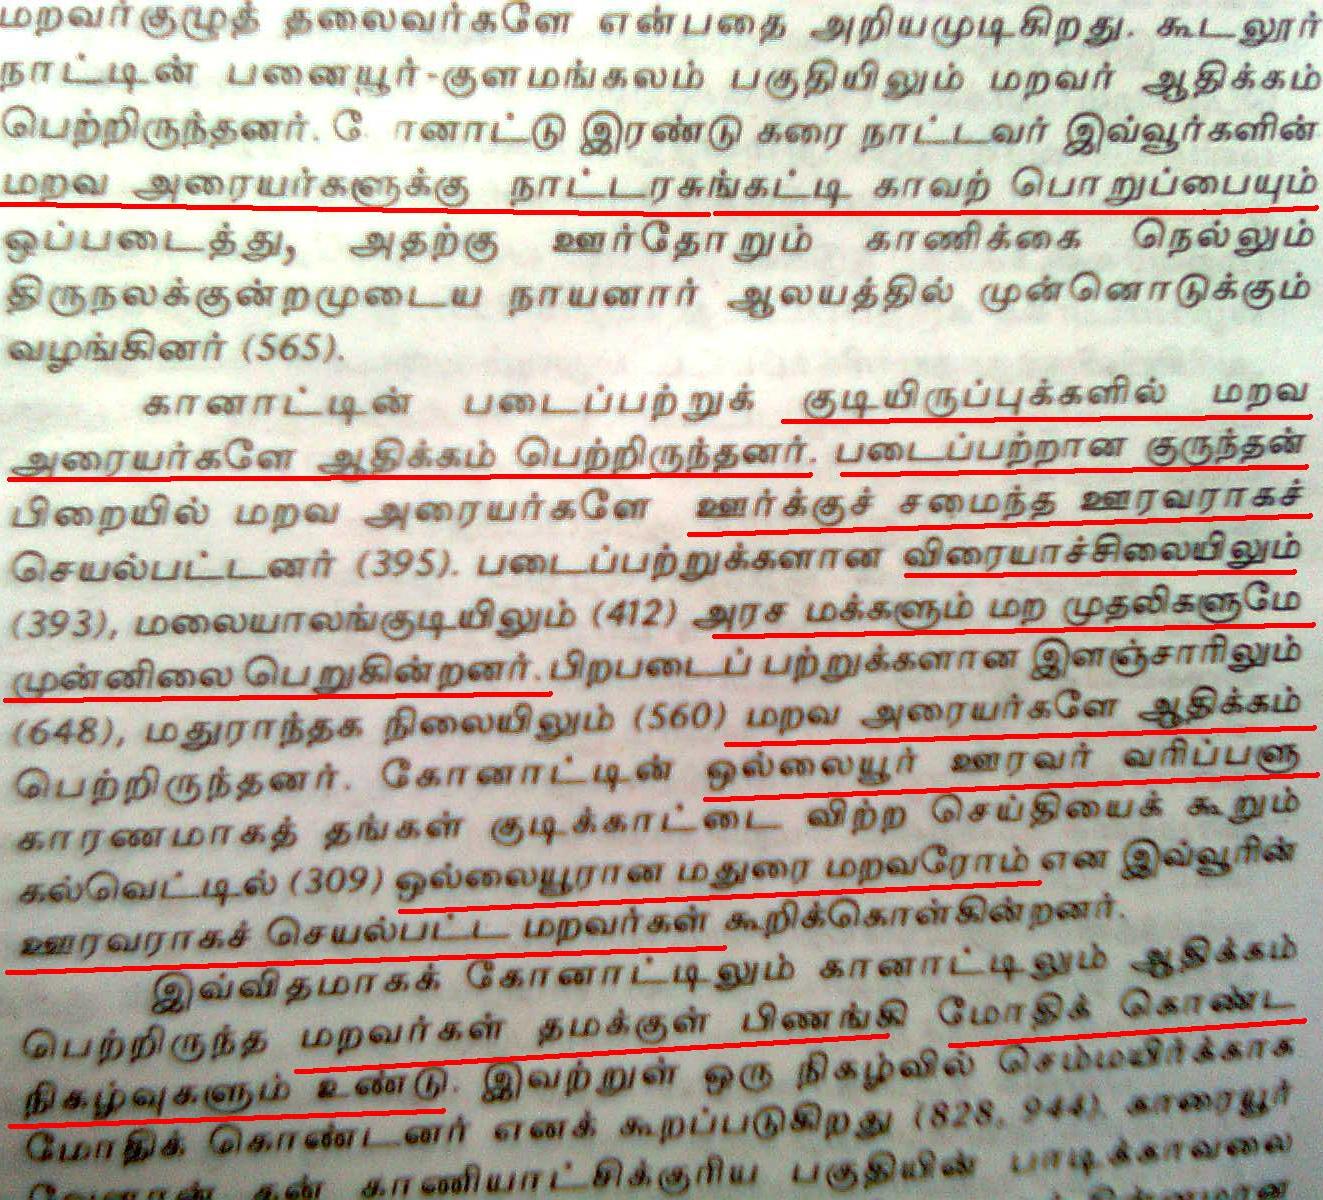 மறவர்குழுத் தலைவர்களே என்பதை அறியமுடிகிறது. கூடலூர்
நாட்டின் பனையூர்-குளமங்கலம் பகுதியிலும் மறவர் ஆதிக்கம்
பெற்றிருந்தனர். கோனாட்டு இரண்டு கரை நாட்டவர் இவ்வூர்களின்
மறவ அரையர்களுக்கு நாட்டரசுங்கட்டி காவற் பொறுப்பையும்
ஒப்படைத்து, அதற்கு ஊர்தோறும் காணிக்கை நெல்லும்
திருநலக்குன்றமுடைய நாயனார் ஆலயத்தில் முன்னொடுக்கும்
வழங்கினர் (565).
கானாட்டின் படைப்பற்றுக் குடியிருப்புக்களில் மறவ
அரையர்களே ஆதிக்கம் பெற்றிருந்தனர். படைப்பற்றான குருந்தன்
பிறையில் மறவ அரையர்களே ஊர்க்குச் சமைந்த ஊரவராகச்
செயல்பட்டனர் (395). படைப்பற்றுக்களான விரையாச்சிலையிலும்
(393), மலையாலங்குடியிலும் (412) அரச மக்களும் மற முதலிகளுமே
முன்னிலை பெறுகின்றனர். பிறபடைப் பற்றுக்களான இளஞ்சாரிலும்
(648), மதுராந்தக நிலையிலும் (560) மறவ அரையர்களே ஆதிக்கம்
பெற்றிருந்தனர். கோனாட்டின் ஒல்லையூர் ஊரவர் வரிப்பளு
காரணமாகத் தங்கள் குடிக்காட்டை விற்ற செய்தியைக் கூறும்
கல்வெட்டில் (309) ஒல்லையூரான மதுரை மறவரோம் என இவ்வூரின்
ஊரவராகச் செயல்பட்ட மறவர்கள் கூறிக்கொள்கின்றனர்.
இவ்விதமாகக் கோனாட்டிலும் கானாட்டிலும் ஆதிக்கம்
பெற்றிருந்த மறவர்கள் தமக்குள் பிணங்கி மோதிக் கொண்ட
நிகழ்வுகளும் உண்டு. இவற்றுள் ஒரு நிகழ்வில் செம்மயிர்க்காக
மோதிக் கொண்டனர் எனக் கூறப்படுகிறது (828, 944). காரையூர்
வேளான் தன் காணியாட்சிக்குரிய பகுதியின் பாடிக்காவலை